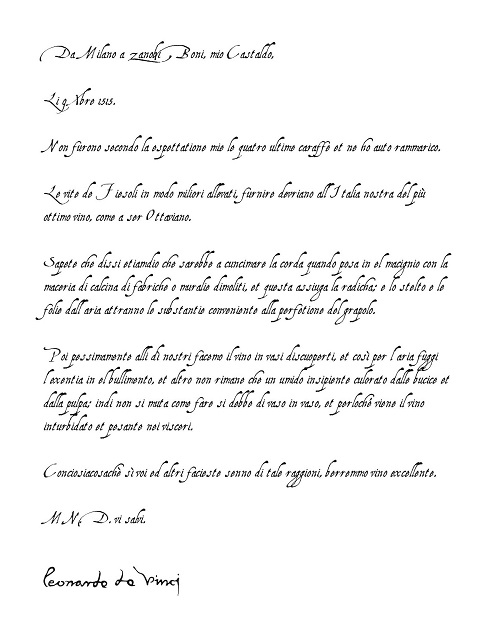 Da Milano a zanobi Boni, mio Castaldo,
Li 9 Xbre 1515.
Non furono secondo la espettatione mie le quatro ultime caraffe et ne ho auto rammarico.
Le vite de Fiesoli in modo miliori allevati, furnire devriano all'Italia nostra del più
ottimo vino, come a ser Ottaviano.
Sapete che dissi etiamdio che sarebbe a cuncimare la corda quando posa in el macignio con la
maceria di calcina di fabriche o muralie dimoliti, et questa assiuga la radicha; e lo stelto e le
folie dall'aria attranno le substantie conveniente alla perfetione del grapolo.
Poi pessimamente alli dì nostri facemo il vino in vasi discuoperti, et così per l'aria fuggi
l'exentia in el bullimento, et altro non rimane che un umido insipiente culorato dalle bucice et
dalla pulpa; indi non si muta come fare si debbe di vaso in vaso, et perloché viene il vino
inturbidato et pesante nei visceri.
Conciosiacosaché sì voi ed altri facieste senno di tale raggioni, berremmo vino excellente.
M N D. vi salvi.
Leonardo da Vinci